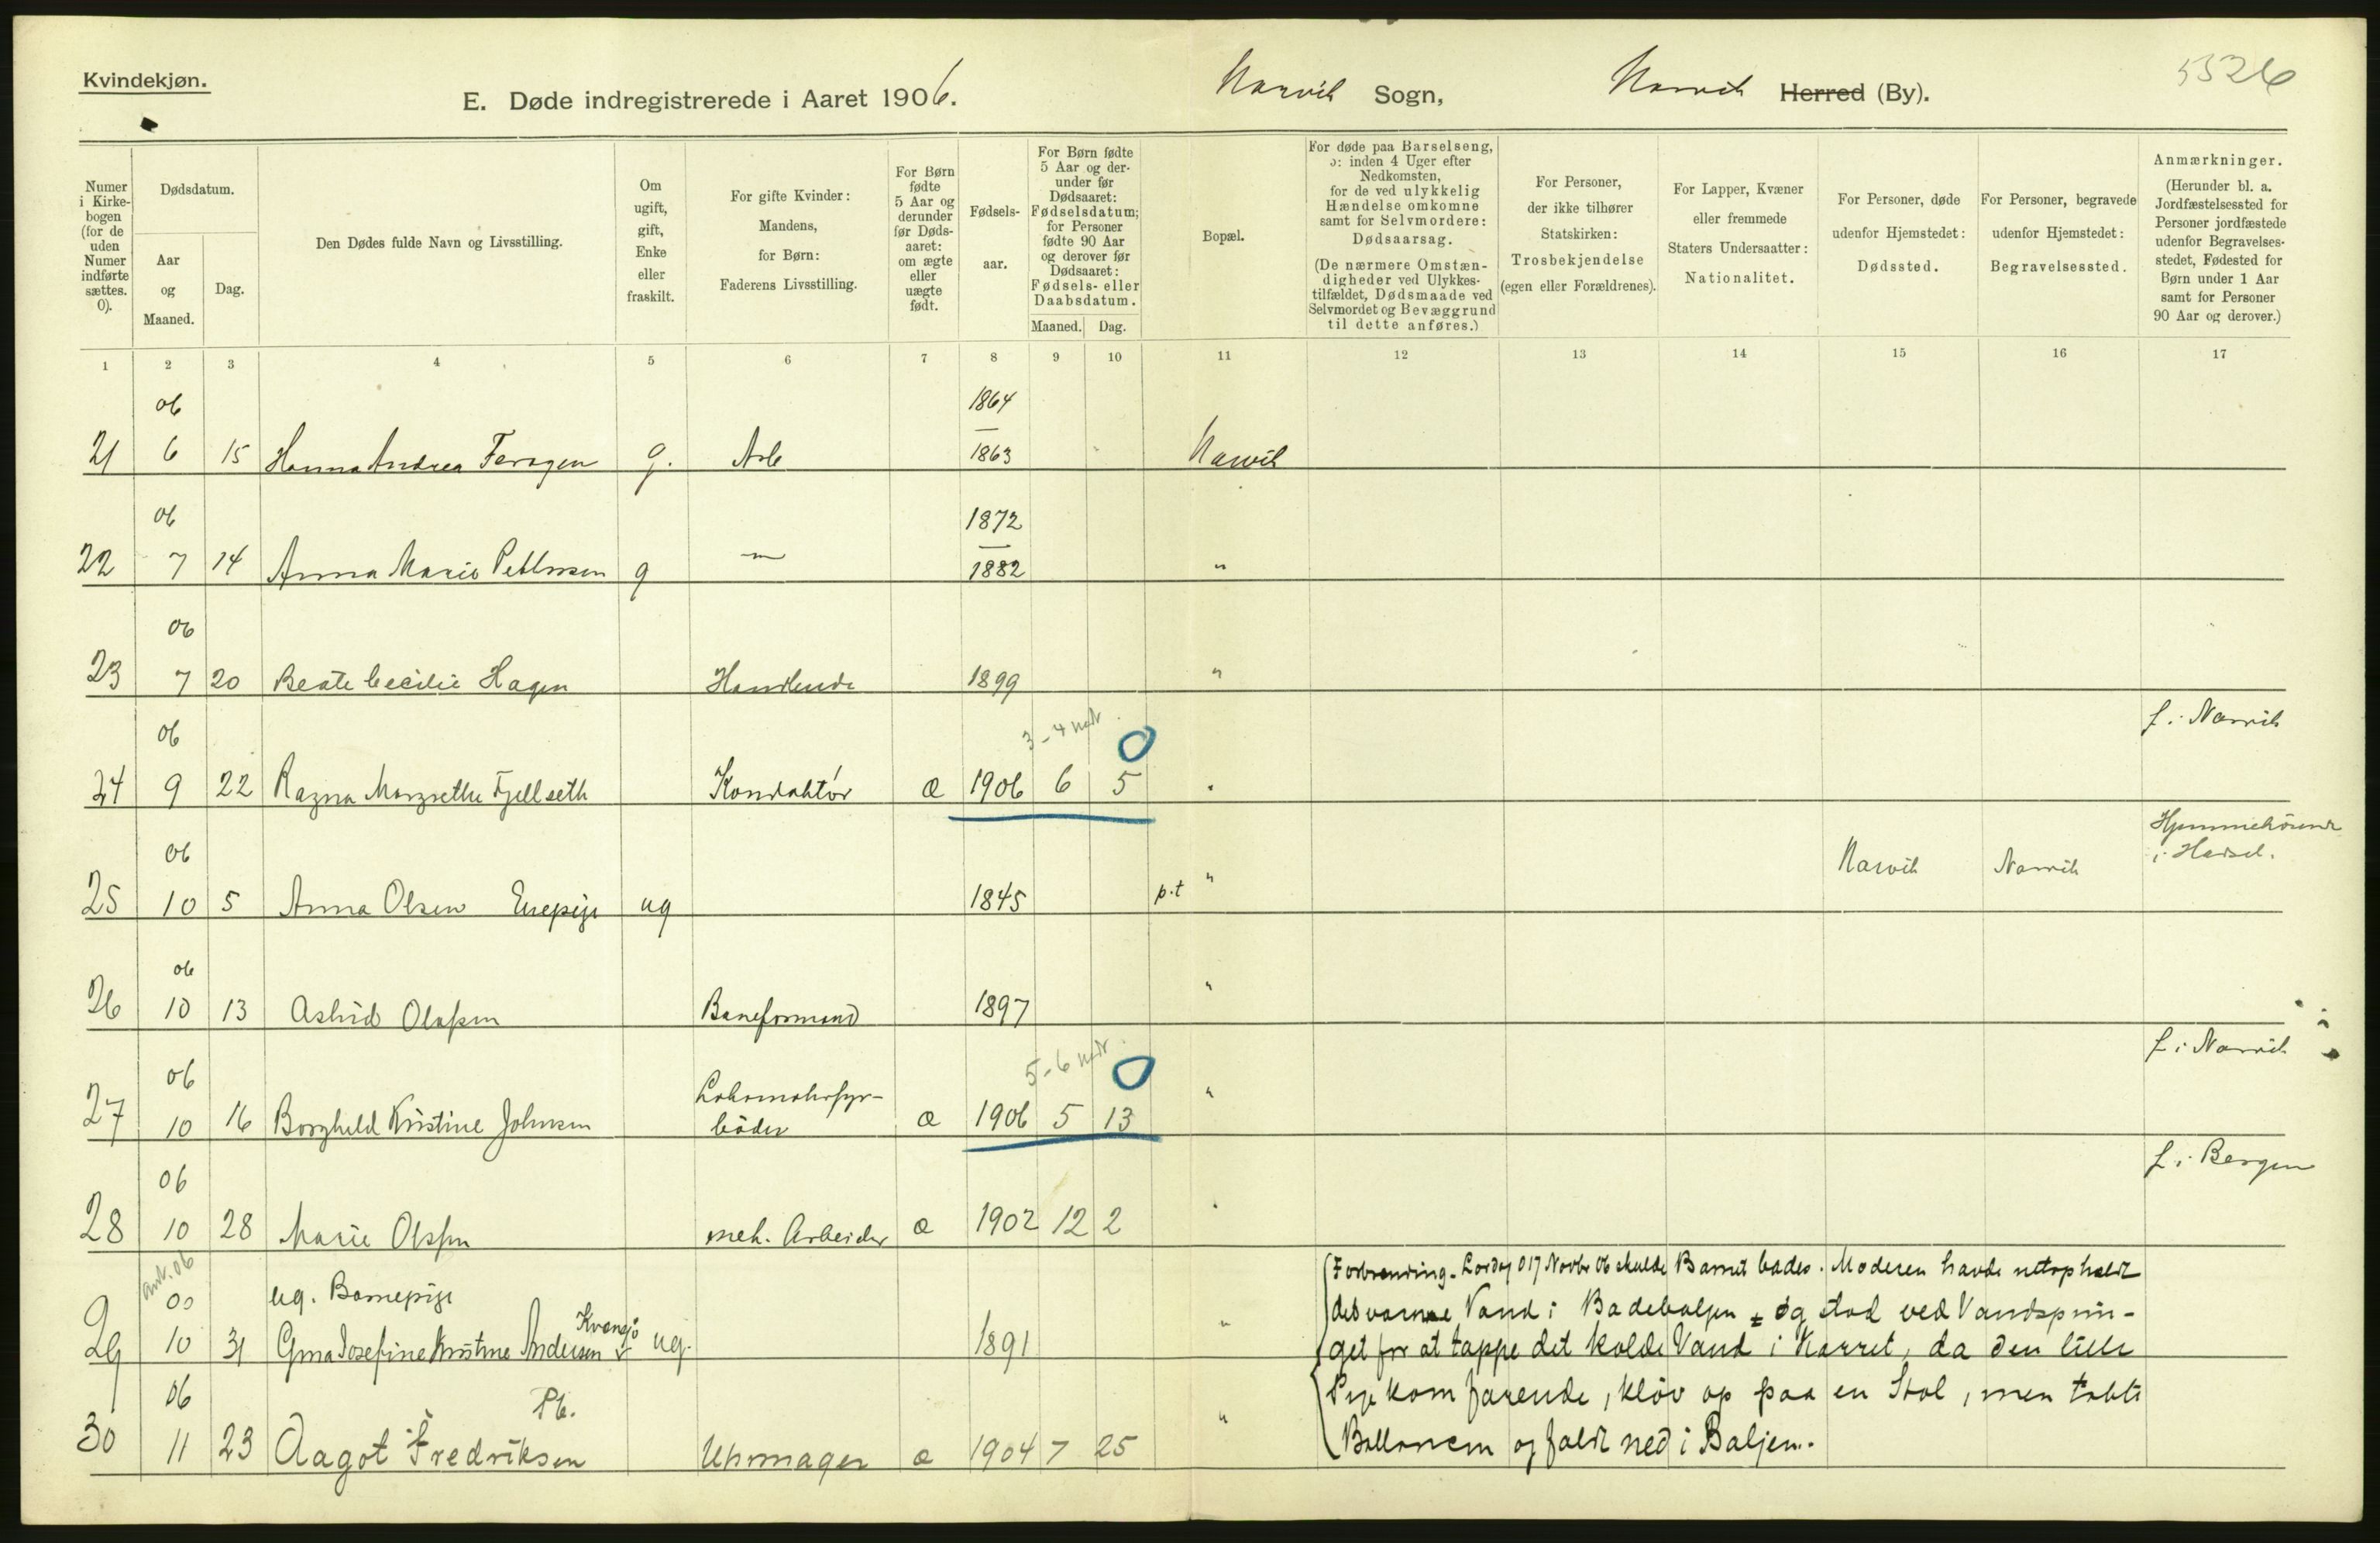 Kvindekjøn.
E. Døde indregistrerede i Aaret 1906.
Narvik Sogn,
Narvik Herred (By).
5526
Numer i Kirkebogen (for de uden Numer indførte sættes. 0).
Dødsdatum.
Aar og Maaned.
Dag.
Den Dødes fulde Navn og Livsstilling.
Om ugift, gift, Enke eller fraskilt.
For gifte Kvinder: Mandens, for Børn: Faderens Livsstilling.
For Børn fødte 5 Aar og derunder før Dødsaaret: om ægte eller uægte født.
Fødselsaar.
For Børn fødte 5 Aar og derunder før Dødsaaret: Fødselsdatum; for Personer fødte 90 Aar og derover før Dødsaaret: Fødsels- eller Daabsdatum.
Maaned. Dag.
Bopæl.
For døde paa Barselseng, ɔ: inden 4 Uger efter Nedkomsten, for de ved ulykkelig Hændelse omkomne samt for Selvmordere: Dødsaarsag. (De nærmere Omstændigheder ved Ulykkestilfældet, Dødsmaade ved Selvmordet og Bevæggrund til dette anføres.)
For Personer, der ikke tilhører Statskirken: Trosbekjendelse (egen eller Forældrenes).
For Lapper, Kvæner eller fremmede Staters Undersaatter: Nationalitet.
For Personer, døde udenfor Hjemstedet: Dødssted.
For Personer, begravede udenfor Hjemstedet: Begravelsessted.
Anmærkninger. (Herunder bl. a. Jordfæstelsessted for Personer jordfæstede udenfor Begravelsesstedet, Fødested for Børn under 1 Aar samt for Personer 90 Aar og derover.)
1 2 3 4 5 6 7 8 9 10 11 12 13 14 15 16 17
06 1864
21 6 15 Hanna Andrea g. Arb 1863 Narvik
06 1872
22 7 14 Anna Marie g — 1882 "
06
23 7 20 Beate Cecilie Hagen Handlende 1899 "
06 3-4 mdr 0 f. i Narvik
24 9 22 Ragna Margrethe Fjellseth Konduktør æ 1906 6 5 "
06 Narvik Narvik Hjemmehörende i Hadsel.
25 10 5 Anna Olsen ug 1845 p.t "
06
26 10 13 Astrid Olafsen Baneformand 1897 "
06 5-6 mdr. 0 f. i Narvik
27 10 16 Borghild Kristine Johnsen Lokomotivfyrböder æ 1906 5 13 "
06 f. i Bergen
28 10 28 Marie Olsen mek. Arbeider æ 1902 12 2 "
ant. 06
00 ug. Barnepige
29 10 31 Gina Josefine Kristine Andersen ug. 1891 "
06
30 11 23 Aagot Fredriksen Pb. Uhrmager æ 1904 7 25 "
Forbrænding. Lørdag 17 Novbr 06 skulde Barnet bades. Moderen havde netop heldt
det varme Vand i Badebaljen og stod ved Vandsprin-
get for at tappe det kolde Vand i Karret, da den lille
Pige kom farende, kløv op paa en Stol, men tabte
Ballancen og faldt ned i Baljen.